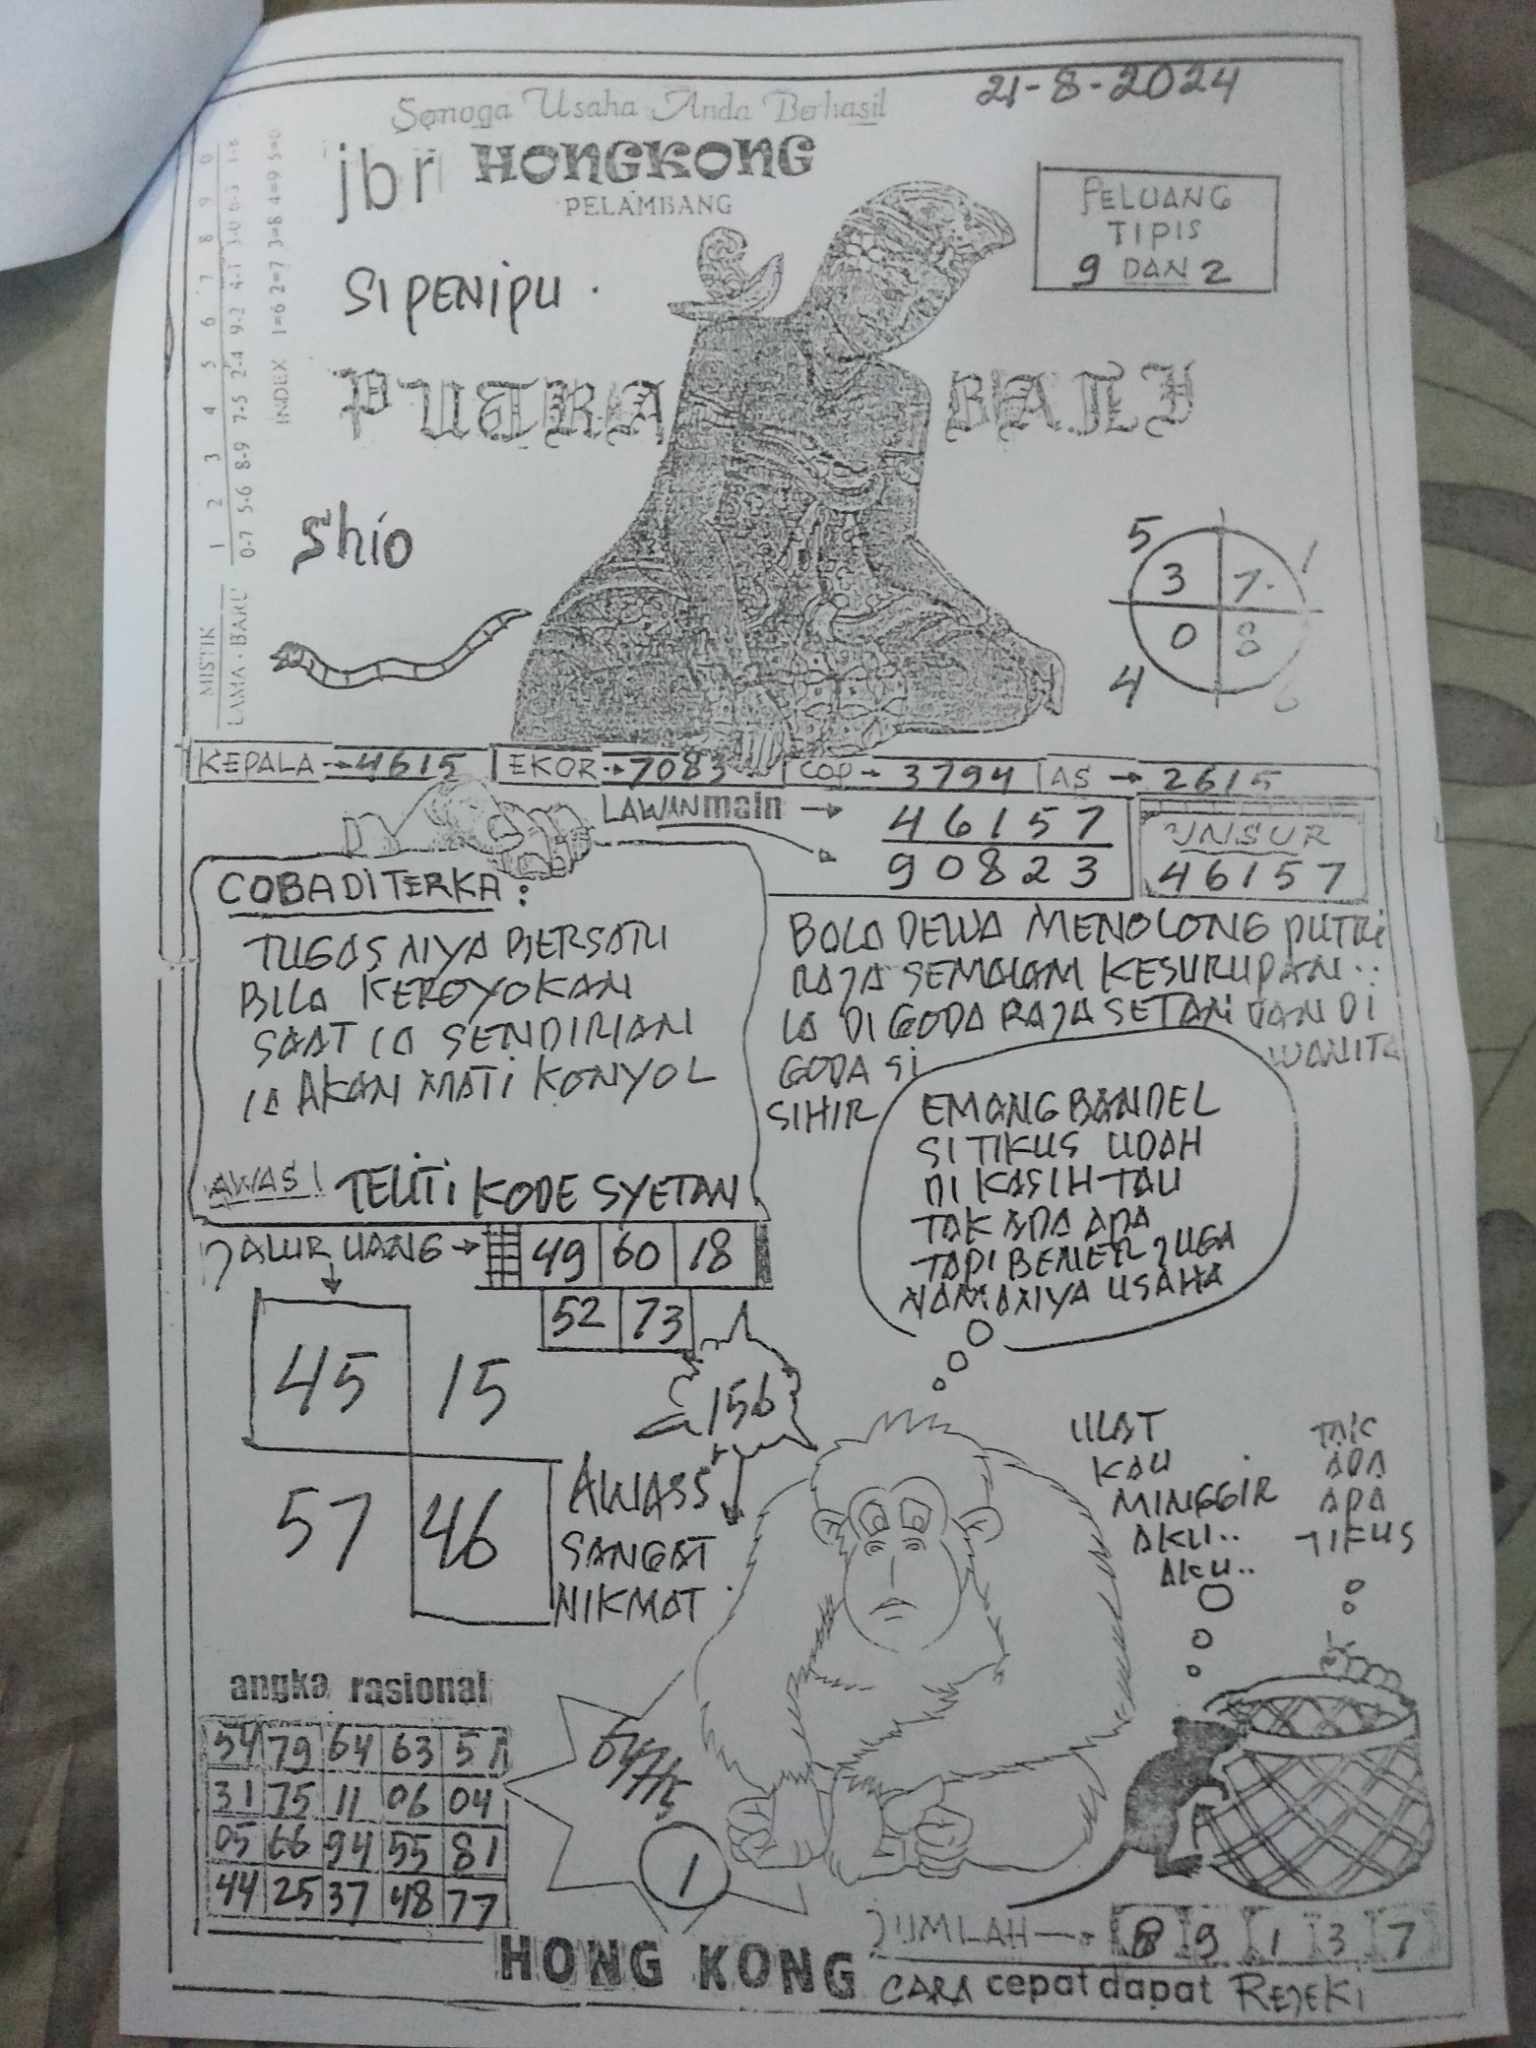 21-8-2024
Semoga Usaha Anda Berhasil
jbr HONGKONG
PELAMBANG
PELUANG
TIPIS
9 DAN 2
SI PENIPU .
PUTRA BALI
Shio
MISTIK 1 2 3 4 5 6 7 8 9 0
LAMA - BARU 0-7 5-6 8-9 7-5 2-4 9-2 4-1 3-0 6-3 1-8
INDEX 1=6 2=7 3=8 4=9 5=0
5 1
3 7
0 8
4 6
KEPALA → 4615 EKOR → 7083 COP → 3794 AS → 2615
LAWAN main → 46157
90823
UNSUR
46157
COBA DI TERKA :
TUGAS NYA BERSATU
BILA KEROYOKAN
SAAT IA SENDIRIAN
IA AKAN MATI KONYOL
AWAS! TELITI KODE SYETAN
BALA DEWA MENOLONG PUTRI
RAJA SEMALAM KESURUPAN..
IA DI GODA RAJA SETAN DAN DI
GODA SI WANITA
SIHIR
EMANG BANDEL
SI TIKUS UDAH
DI KASIH TAU
TAK ADA APA
TAPI BENER JUGA
NAMANYA USAHA
JALUR UANG → 49 60 18
52 73
45 15
57 46
156
AWASS
SANGAT
NIKMAT
ULAT
KAU
MINGGIR
AKU..
AKU..
TAK
ADA
APA
TIKUS
angka rasional
54 79 64 63 51
31 75 11 06 04
05 66 94 55 81
44 25 37 48 77
1
JUMLAH → 8 9 1 3 7
HONG KONG
CARA cepat dapat REJEKI